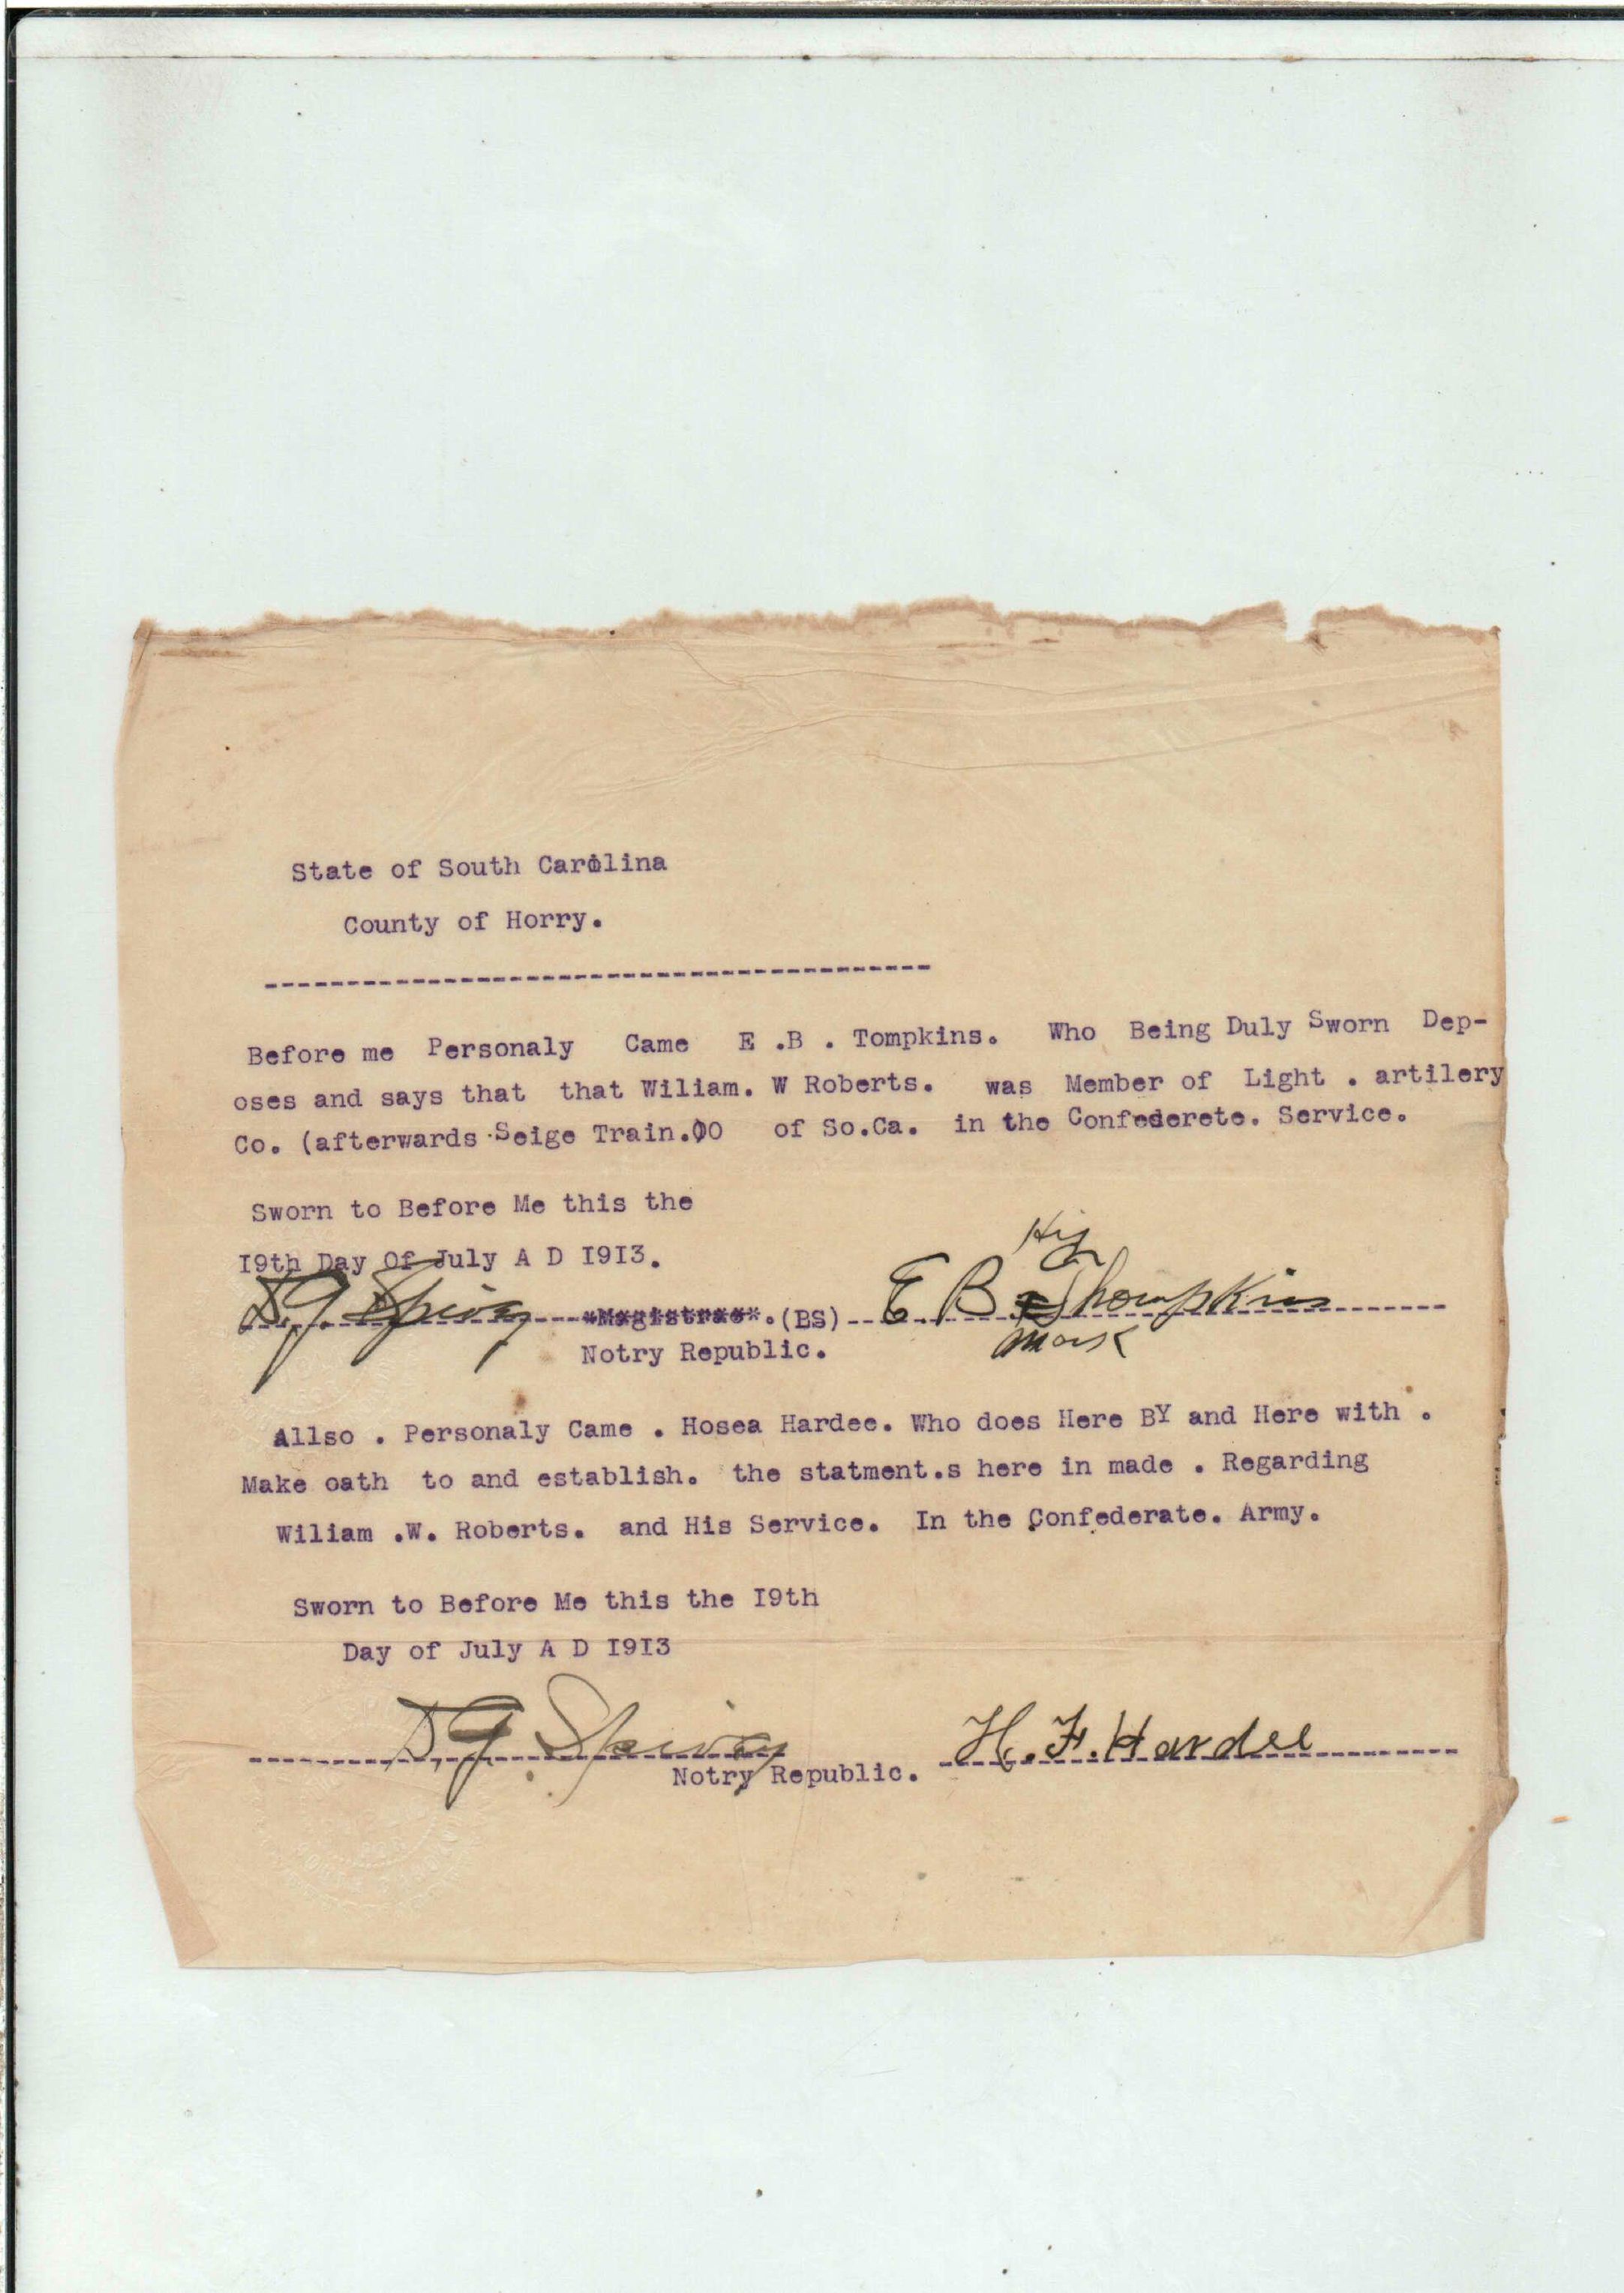 State of South Carolina
County of Horry.
Before me Personaly Came E .B . Tompkins. Who Being Duly Sworn Dep-
oses and says that that Wiliam. W Roberts. was Member of Light . artilery
Co. (afterwards Seige Train.)O of So.Ca. in the Confederete. Service.
Sworn to Before Me this the
I9th Day Of July A D I9I3.
His
D. G. Spivey *Magistrae*. (BS) E B x Thompkins
Mark
Notry Republic.
Allso . Personaly Came . Hosea Hardee. Who does Here BY and Here with .
Make oath to and establish. the statment.s here in made . Regarding
Wiliam .W. Roberts. and His Service. In the Confederate. Army.
Sworn to Before Me this the I9th
Day of July A D I9I3
D. G. Spivey H. F. Hardee
Notry Republic.